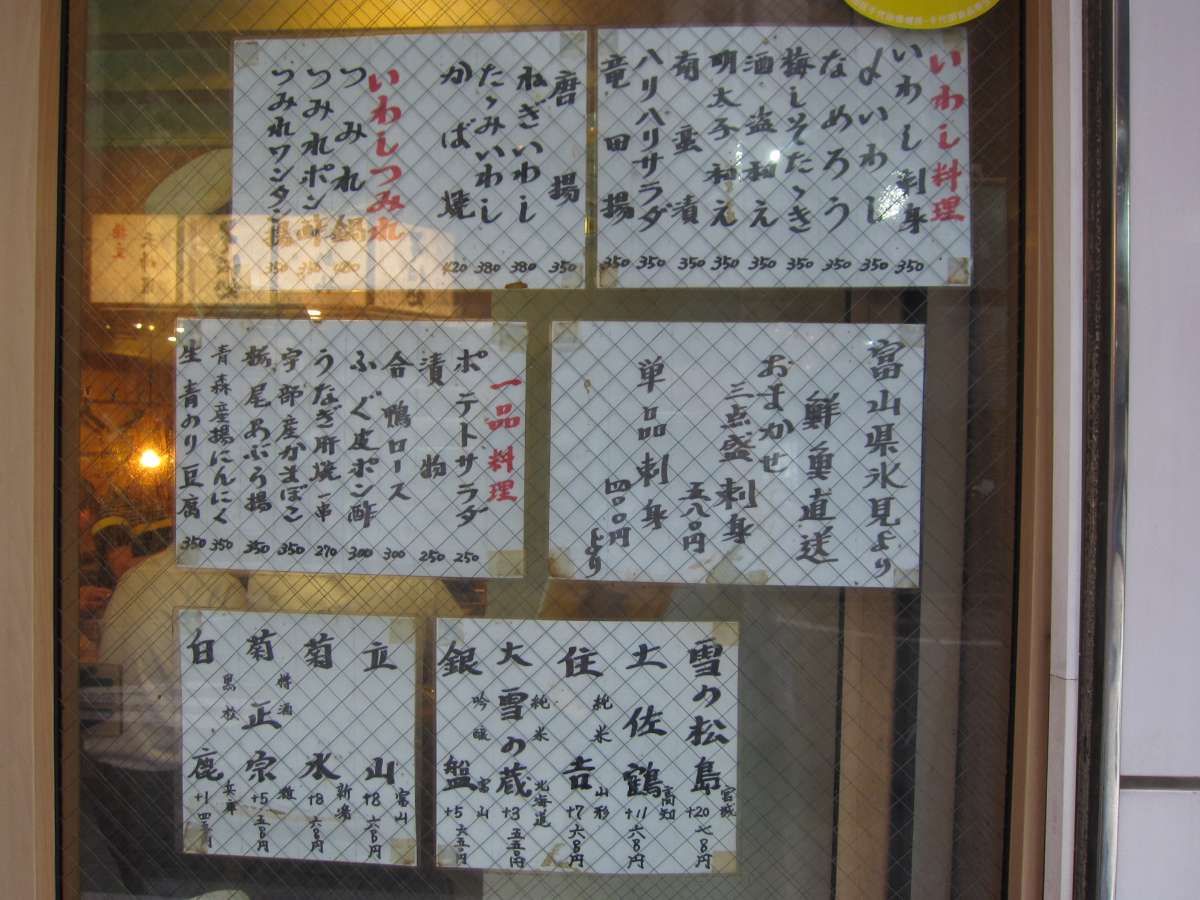 いわし料理
いわし刺身 350
〆いわし 350
なめろう 350
梅しそたゝき 350
酒盗和え 350
明太子和え 350
南蛮漬 350
ハリハリサラダ 350
竜田揚 350
唐揚 350
ねぎいわし 380
たゝみいわし 380
かば焼 420
いわしつみれ
つみれ鍋 420
つみれポン酢 350
つみれワンタン揚 350
富山県氷見より
鮮魚直送
おまかせ
三点盛刺身
五八〇円
単品刺身
四〇〇円
より
一品料理
ポテトサラダ 250
漬物 250
合鴨ロース 300
ふぐ皮ポン酢 300
うなぎ肝焼一串 270
宇部産かまぼこ 350
栃尾あぶら揚 350
青森産揚にんにく 350
生青のり豆腐 350
雪の松島 宮城 +20 七八〇円
土佐鶴 高知 +11 六八〇円
住吉 純米 山形 +7 六八〇円
大雪の蔵 純米 北海道 +3 五五〇円
銀盤 吟醸 富山 +5 六五〇円
立山 富山 +8 六八〇円
菊水 新潟 +8 六八〇円
菊正宗 樽酒 +5 五八〇円
白鹿 黒松 兵庫 +1